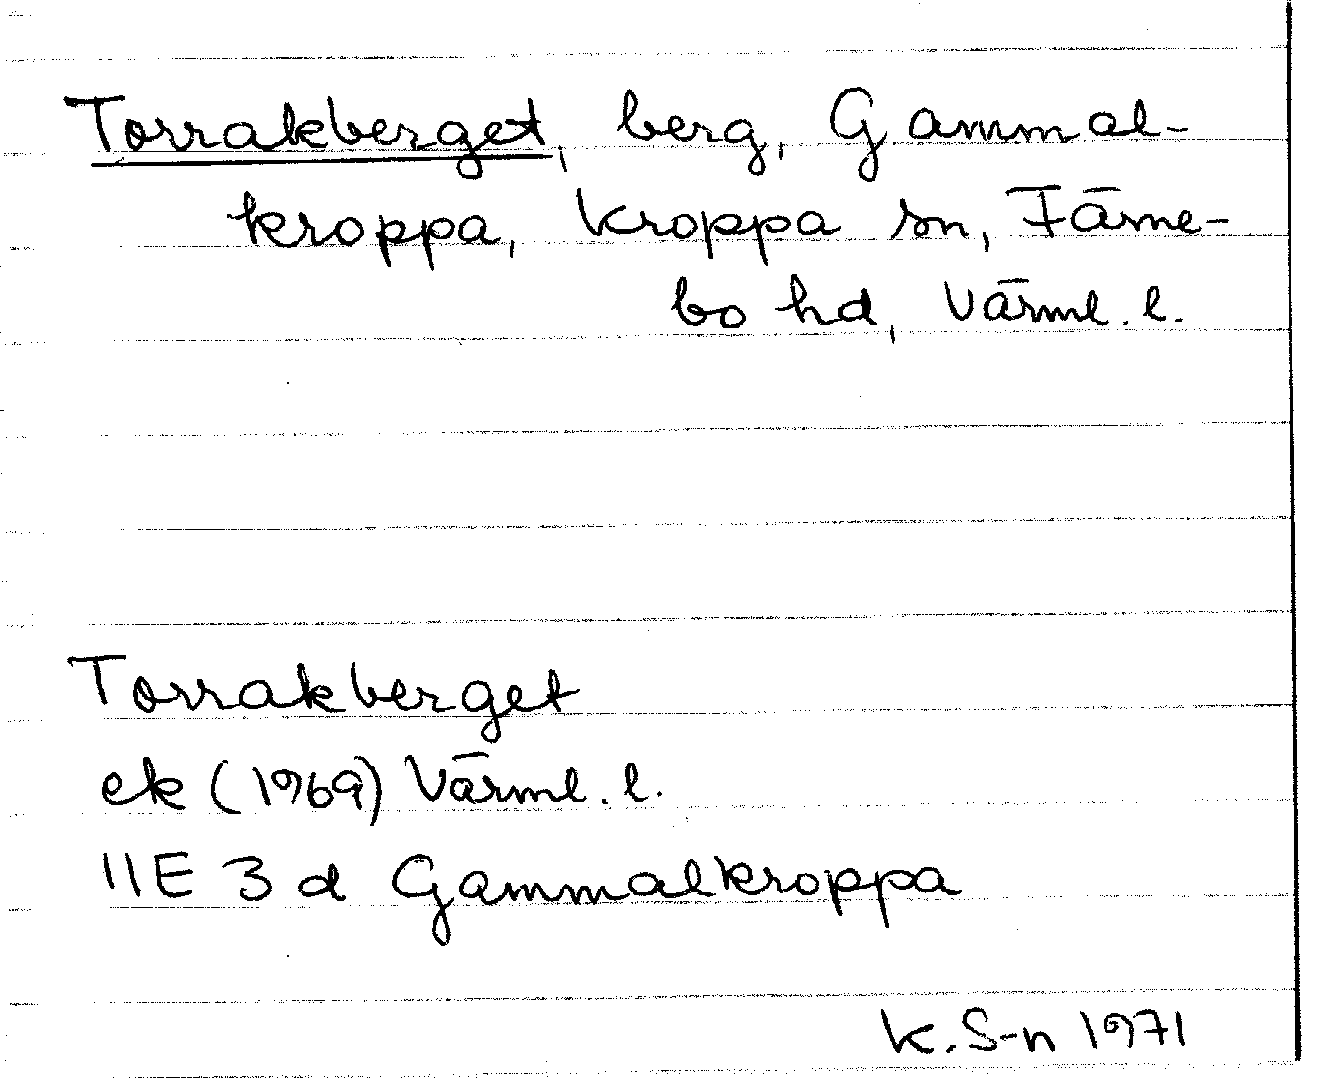 Torrakberget, berg, Gammal-
kroppa, Kroppa sn, Färne-
bo hd, Värml. l.
Torrakberget
ek (1969) Värml. l.
11E 3 d Gammalkroppa
K. S-n 1971